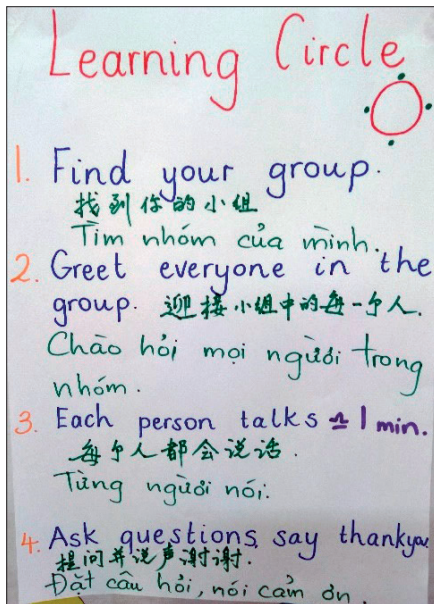 Learning Circle
1. Find your group.
找到你的小组
Tìm nhóm của mình.
2. Greet everyone in the
group. 迎接小组中的每一个人.
Chào hỏi mọi người trong
nhóm.
3. Each person talks ≏ 1 min.
每个人都会说话.
Từng người nói.
4. Ask questions, say thankyou.
提问并说声谢谢.
Đặt câu hỏi, nói cảm ơn.